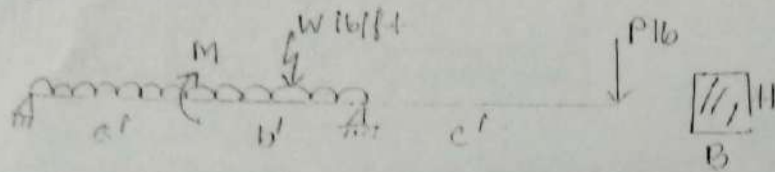 W lb/ft
M
P lb
a' b' c'
H
B